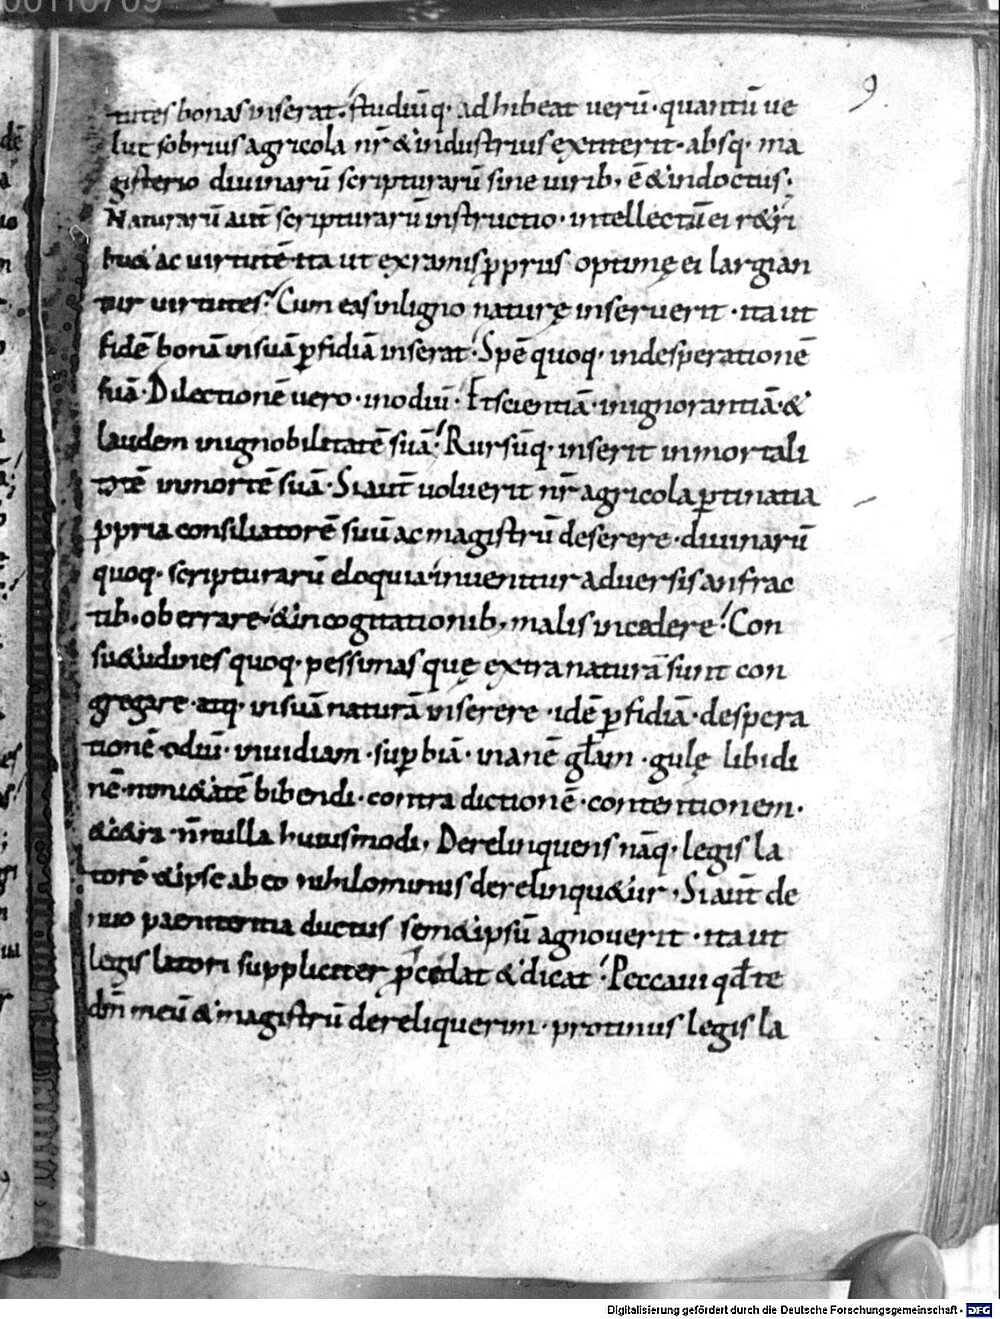 00110709
9
tutes bonas inserat. studiūq· adhibeat uerū· quantū ue
lut sobrius agricola nr̄ & industrius extiterit· absq· ma
gisterio diuinarū scripturarū sine uirib; ē & indoctus·
Naturarū aut̄ scripturarū instructio· intellectū ei
ac uirtutē ita ut ex ramis ꝓpriis optimę ei largian
tur uirtutes. Cum eas in ligno naturę inseruerit· ita ut
fidē bonā in suā ꝑfidiā inserat· Spē quoq· in desperationē
suā· Dilectionē uero· in odiū· Et scientiā· in ignorantiā· &
laudem in ignobilitatē suā· Rursūq· inserit inmortali
tatē in mortē suā· Si aut̄ uoluerit nr̄ agricola ꝑtinatia
ꝓpria consiliatorē suū ac magistrū deserere· diuinarū
quoq· scripturarū eloquia inuenitur aduersis anfrac
tib; oberrare· & in cogitationib; malis incedere· Con
su&udines quoq· pessimas quę extra naturā sunt con
gregare atq· in suā naturā inserere· idē ꝑfidiā· despera
tionē· odiū· inuidiam· suꝑbiā· inanē gl̄am· gulę libidi
nē· nimi&atē bibendi· contradictionē· contentionem·
& c&era· n̄nulla huiusmodi. Derelinquens nāq· legis la
torē & ipse ab eo nihilominus derelinqu&ur. Si aut̄ de
nuo paenitentia ductus sem&ipsū agnouerit· ita ut
legis latori suppliciter ꝓcedat & dicat· Peccaui qđ te
dn̄m meū & magistrū dereliquerim· protinus legis la
Digitalisierung gefördert durch die Deutsche Forschungsgemeinschaft - DFG